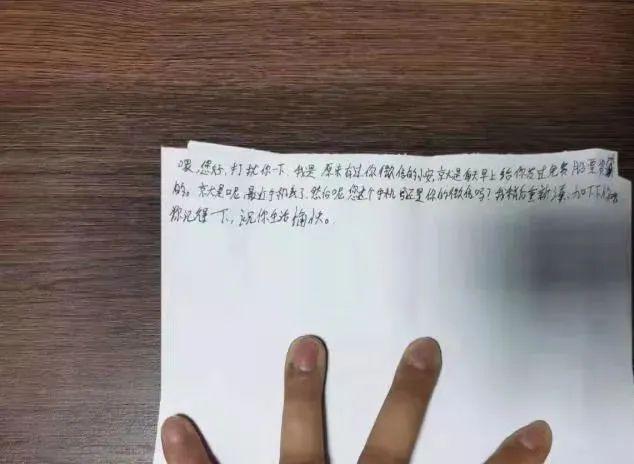 喂,您好,打扰你下,我是原来有过你微信的小安,就是每天早上给你发过免费股票资
的。就是呢最近手机丢了,然后呢,您这个手机号还是你的微信吗?我稍后重新添加下
你记得一下,祝你生活愉快。